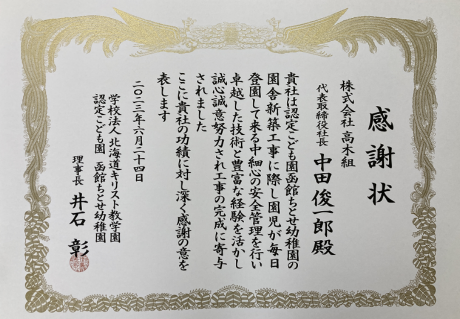 感謝状
株式会社 高木組
代表取締役社長 中田俊一郎殿
貴社は認定こども園函館ちとせ幼稚園の
園舎新築工事に際し園児が毎日
登園して来る中細心の安全管理を行い
卓越した技術と豊富な経験を活かし
誠心誠意努力され工事の完成に寄与
されました
ここに貴社の功績に対し深く感謝の意を
表します
二〇二三年六月二十四日
学校法人 北海道キリスト教学園
認定こども園 函館ちとせ幼稚園
理事長 井石 彰